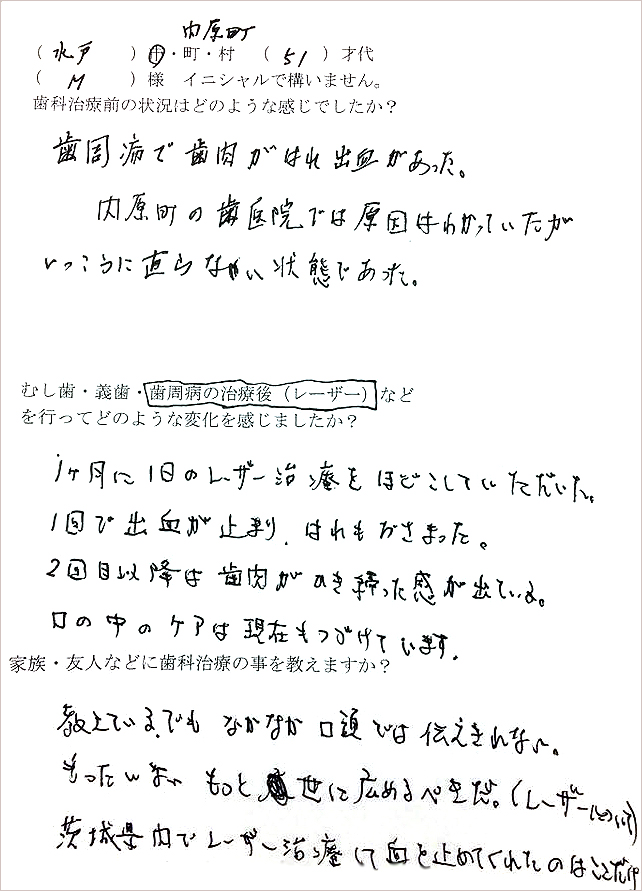 内原町
( 水戸 ) 市・町・村 ( 51 ) 才代
( M ) 様 イニシャルで構いません。
歯科治療前の状況はどのような感じでしたか？
歯周病で歯肉がはれ出血があった。
内原町の歯医院では原因はわかっていたが
いっこうに直らなかい状態であった。
むし歯・義歯・歯周病の治療後（レーザー）など
を行ってどのような変化を感じましたか？
1ヶ月に1日のレーザー治療をほどこしていただいた。
1回で出血が止まり、はれもおさまった。
2回目以降は歯肉がひき締った感が出ている。
口の中のケアは現在もつづけています。
家族・友人などに歯科治療の事を教えますか？
教えている、でもなかなか口頭では伝えきれない。
もったいない もっと世に広めるべきだ。(レーザーについて)
茨城県内でレーザー治療にて血を止めてくれたのはここだけ